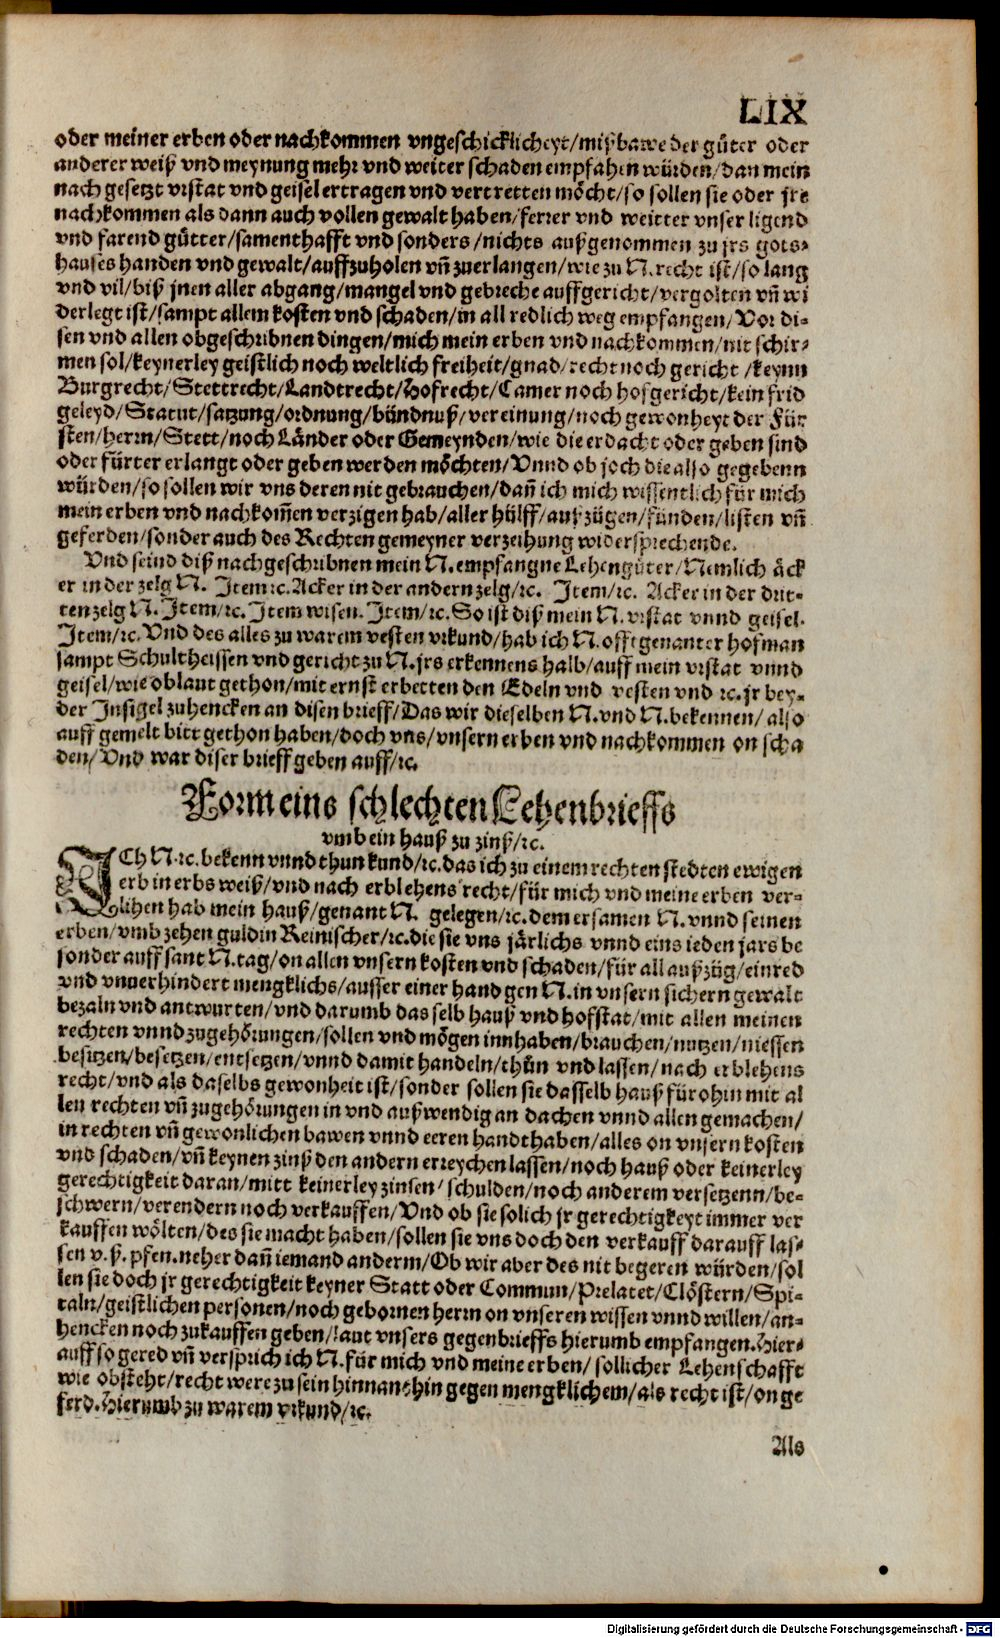 LIX
oder meiner erben oder nachkommen vngeschicklicheyt/mißbawe der güter oder
anderer weiß vnd meynung mehr vnd weiter schaden empfahen würden/dan mein
nach gesetzt vrstat vnd geisel ertragen vnd vertretten möcht/so sollen sie oder jre
nachkommen als dann auch vollen gewalt haben/ferrer vnd weitter vnser ligend
vnd farend gütter/samenthafft vnd sonders/nichts außgenommen zu jrs gots-
hauses handen vnd gewalt/auffzuholen vñ zuerlangen/wie zu N.recht ist/so lang
vnd vil/biß jnen aller abgang/mangel vnd gebreche auffgericht/vergolten vñ wi
derlegt ist/sampt allem kosten vnd schaden/in all redlich weg empfangen/Vor di-
sen vnd allen obgeschribnen dingen/mich mein erben vnd nachkommen/nit schir-
men sol/keynerley geistlich noch weltlich freiheit/gnad/recht noch gericht/keynn
Burgrecht/Stettrecht/Landtrecht/Hofrecht/Camer noch hofgericht/kein frid
geleyd/Statut/satzung/ordnung/bündnuß/vereinung/noch gewonheyt der Für
sten/herrn/Stett/noch Länder oder Gemeynden/wie die erdacht oder geben sind
oder fürter erlangt oder geben werden möchten/Vnnd ob joch die also gegebenn
würden/so sollen wir vns deren nit gebrauchen/dañ ich mich wissentlich für mich
mein erben vnd nachkom̃en verzigen hab/aller hülff/außzügen/fünden/listen vñ
geferden/sonder auch des Rechten gemeyner verzeihung widersprechende.
Vnd seind diß nachgeschribnen mein N.empfangne Lehengüter/Nemlich äck
er in der zelg N. Item ꝛc.Acker in der andern zelg/ꝛc. Item/ꝛc. Acker in der drit-
ten zelg N.Item/ꝛc.Item wisen.Item/ꝛc.So ist diß mein N.vrstat vnnd geisel.
Item/ꝛc.Vnd des alles zu warem vesten vrkund/hab ich N.offtgenanter hofman
sampt Schultheissen vnd gericht zu N.jrs erkennens halb/auff mein vrstat vnnd
geisel/wie oblaut gethon/mit ernst erbetten den Edeln vnd vesten vnd ꝛc.jr bey-
der Insigel zuhencken an disen brieff/Das wir dieselben N.vnd N.bekennen/also
auff gemelt bitt gethon haben/doch vns/vnsern erben vnd nachkommen on scha
den/Vnd war diser brieff geben auff/ꝛc.
Form eins schlechten Lehenbrieffs
vmb ein hauß zu zinß/ꝛc.
ICh N.ꝛc.bekenn vnnd thun kund/ꝛc.das ich zu einem rechten stedten ewigen
erb in erbs weiß/vnd nach erblehens recht/für mich vnd meine erben ver-
lihen hab mein hauß/genant N. gelegen/ꝛc.dem ersamen N.vnnd seinen
erben/vmb zehen guldin Reinischer/ꝛc.die sie vns järlichs vnnd eins ieden jars be
sonder auff sant N.tag/on allen vnsern kosten vnd schaden/für all außzüg/einred
vnd vnuerhindert mengklichs/ausser einer hand gen N.in vnsern sichern gewalt
bezaln vnd antwurten/vnd darumb das selb hauß vnd hofstat/mit allen meinen
rechten vnnd zugehörungen/sollen vnd mögen innhaben/brauchen/nutzen/niessen
besitzen/besetzen/entsetzen/vnnd damit handeln/thün vnd lassen/nach erblehens
recht/vnd als daselbs gewonheit ist/sonder sollen sie dasselb hauß fürohin mit al
len rechten vñ zugehörungen in vnd außwendig an dachen vnnd allen gemachen/
in rechten vñ gewonlichen bawen vnnd eeren handthaben/alles on vnsern kosten
vnd schaden/vñ keynen zinß den andern erreychen lassen/noch hauß oder keinerley
gerechtigkeit daran/mitt keinerley zinsen/schulden/noch anderem versetzenn/be-
schwern/verendern noch verkauffen/Vnd ob sie solich jr gerechtigkeyt immer ver
kauffen wölten/des sie macht haben/sollen sie vns doch den verkauff darauff las-
sen v.ß.pfen.neher dañ iemand anderm/Ob wir aber des nit begeren würden/sol
len sie doch jr gerechtigkeit keyner Statt oder Commun/Prelatet/Clöstern/Spi-
taln/geistlichen personen/noch gebornen herrn on vnseren wissen vnnd willen/an-
hencken noch zukauffen geben/laut vnsers gegenbrieffs hierumb empfangen.Hier-
auff so gered vñ versprich ich N.für mich vnd meine erben/sollicher Lehenschafft
wie obsteht/recht were zu sein hinnanthin gegen mengklichem/als recht ist/on ge
ferd.Hierumb zu warem vrkund/ꝛc.
Als
Digitalisierung gefördert durch die Deutsche Forschungsgemeinschaft - DFG